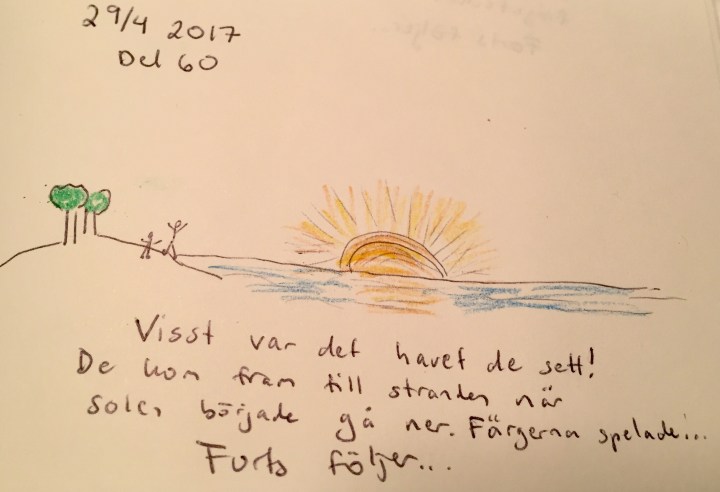 29/4 2017
Del 60
Visst var det havet de sett!
De kom fram till stranden när
solen började gå ner. Färgerna spelade...
Forts följer...